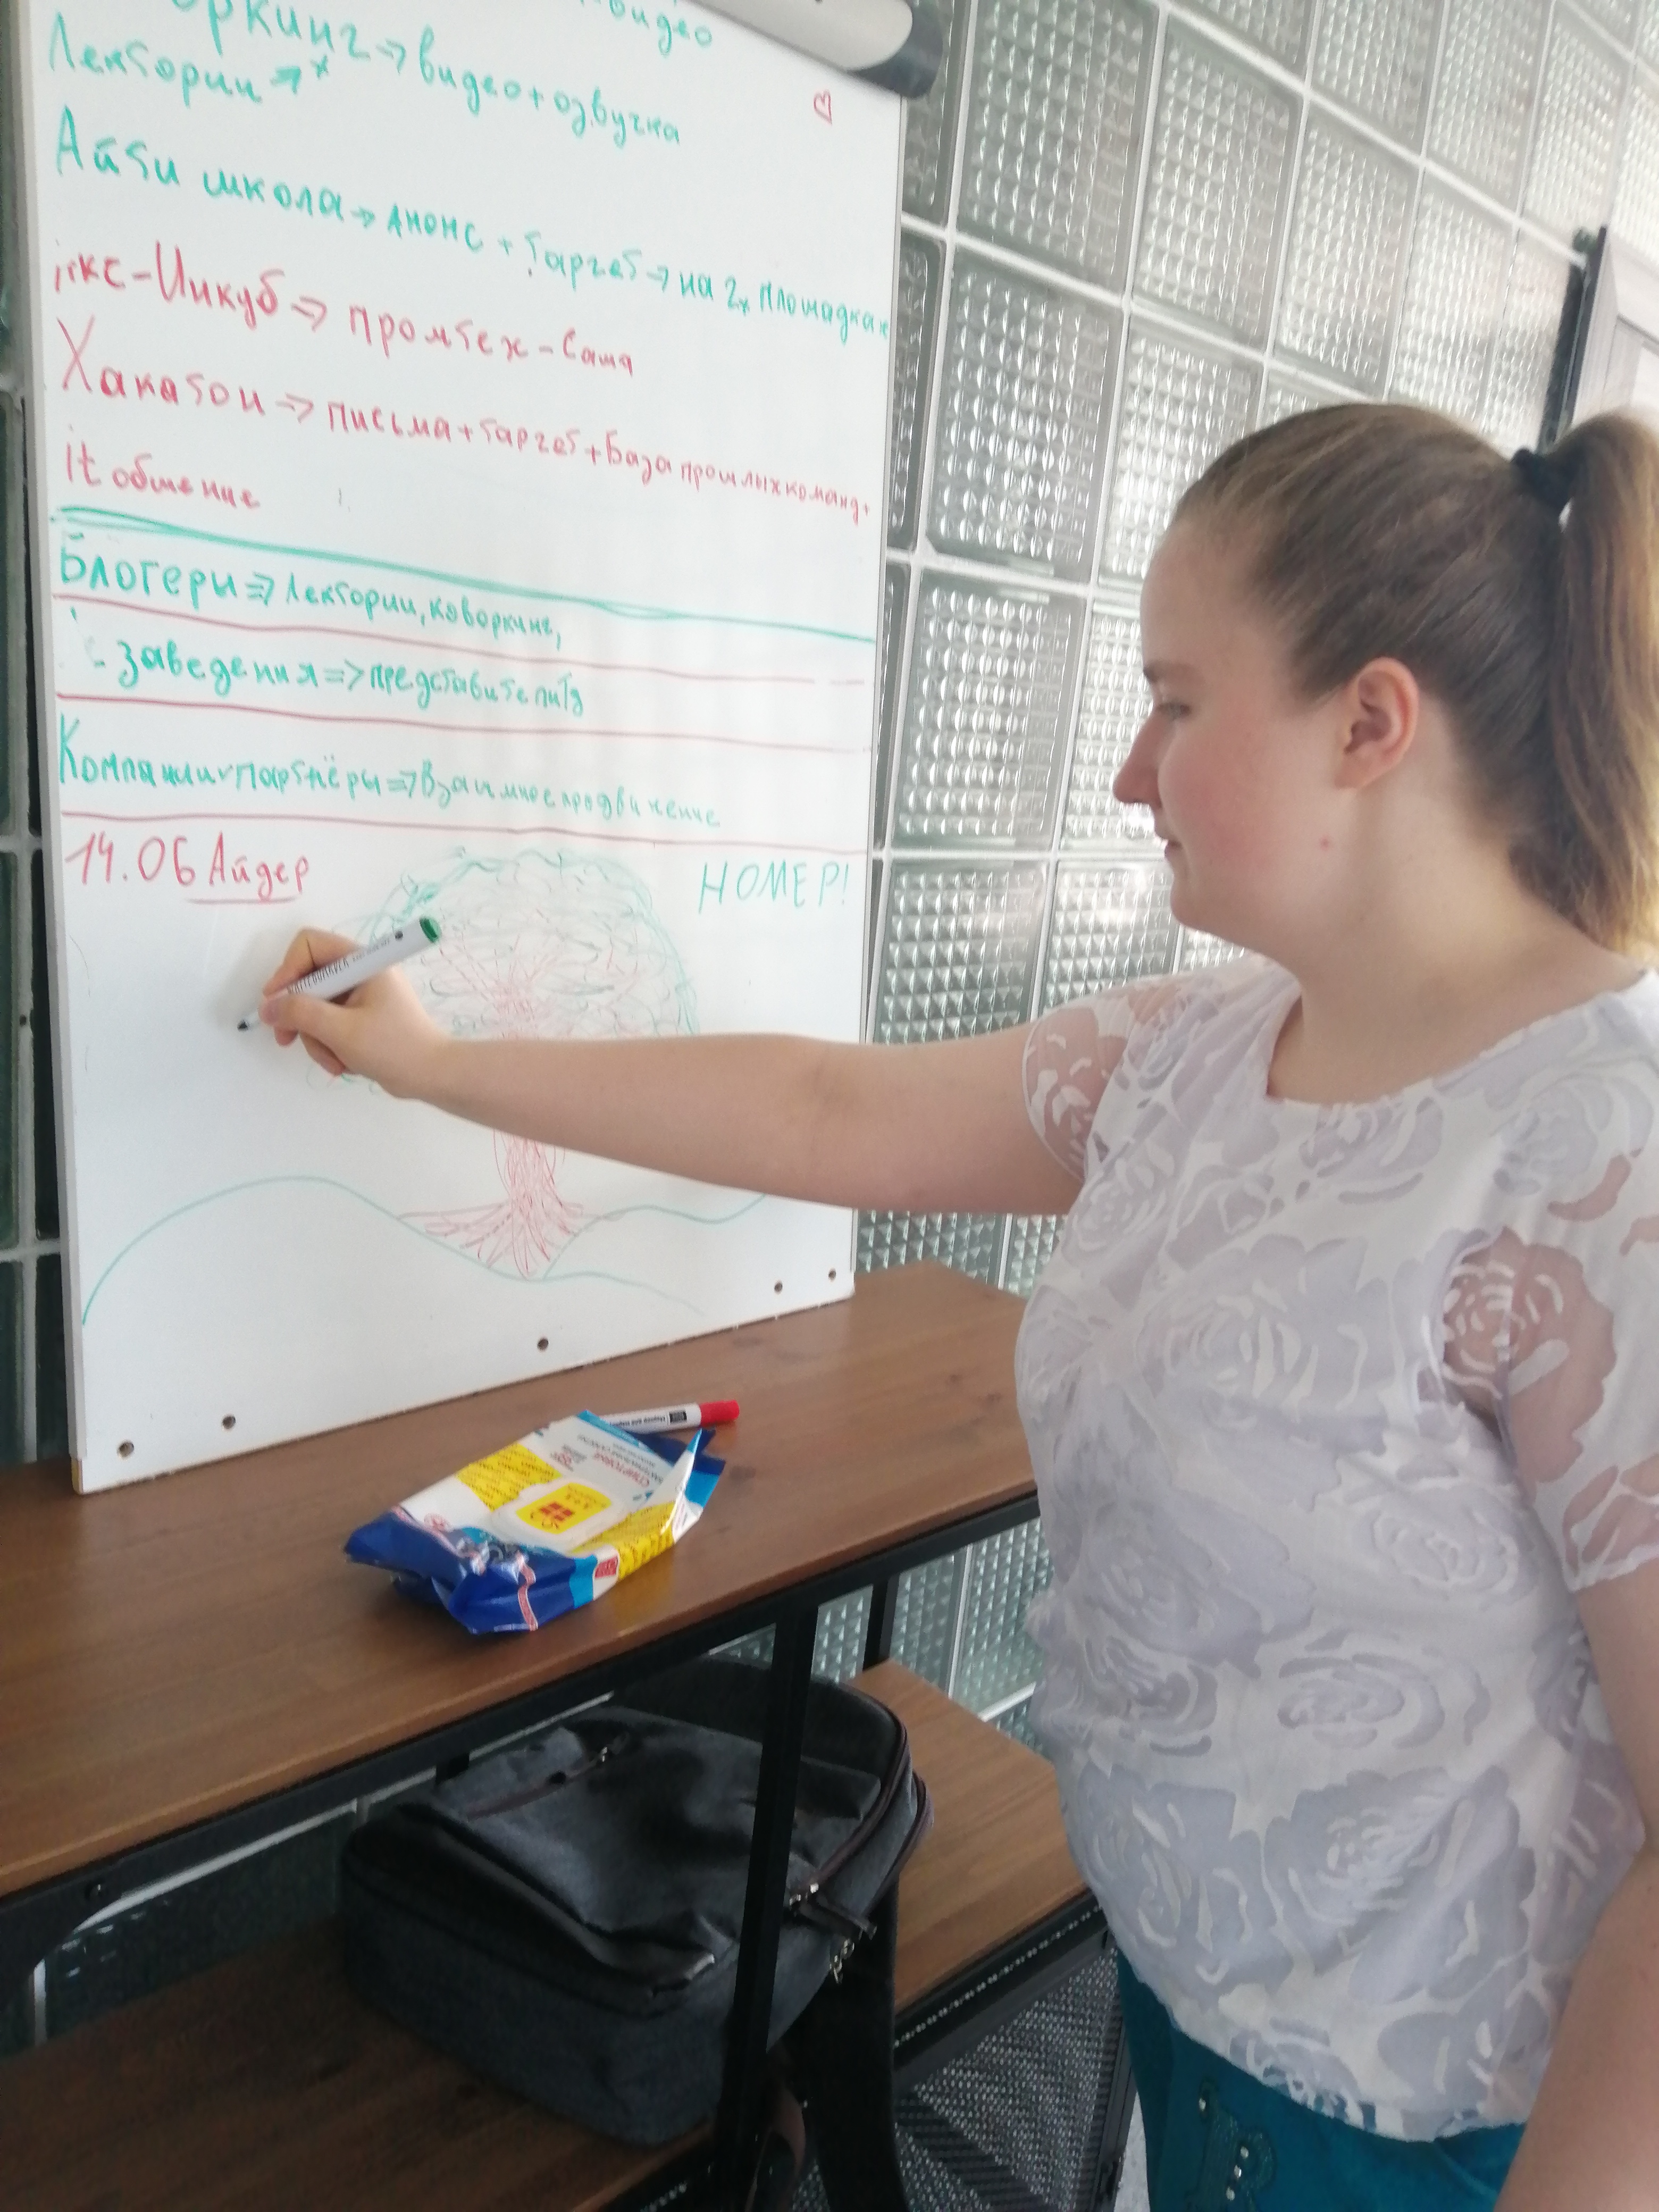 видео
оркинг => видео + озвучка
Лектории => *
Айти школа => Анонс + таргет => на 2х площадках
икс-Инкуб => промтех - Саша
Хакатон => письма + таргет + база прошлых команд +
it общение
Блогеры => Лектории, коворкинг,
- Заведения => представитель ТД
Компании-партнёры => Взаимное продвижение
14.06 Айдер
НОМЕР!